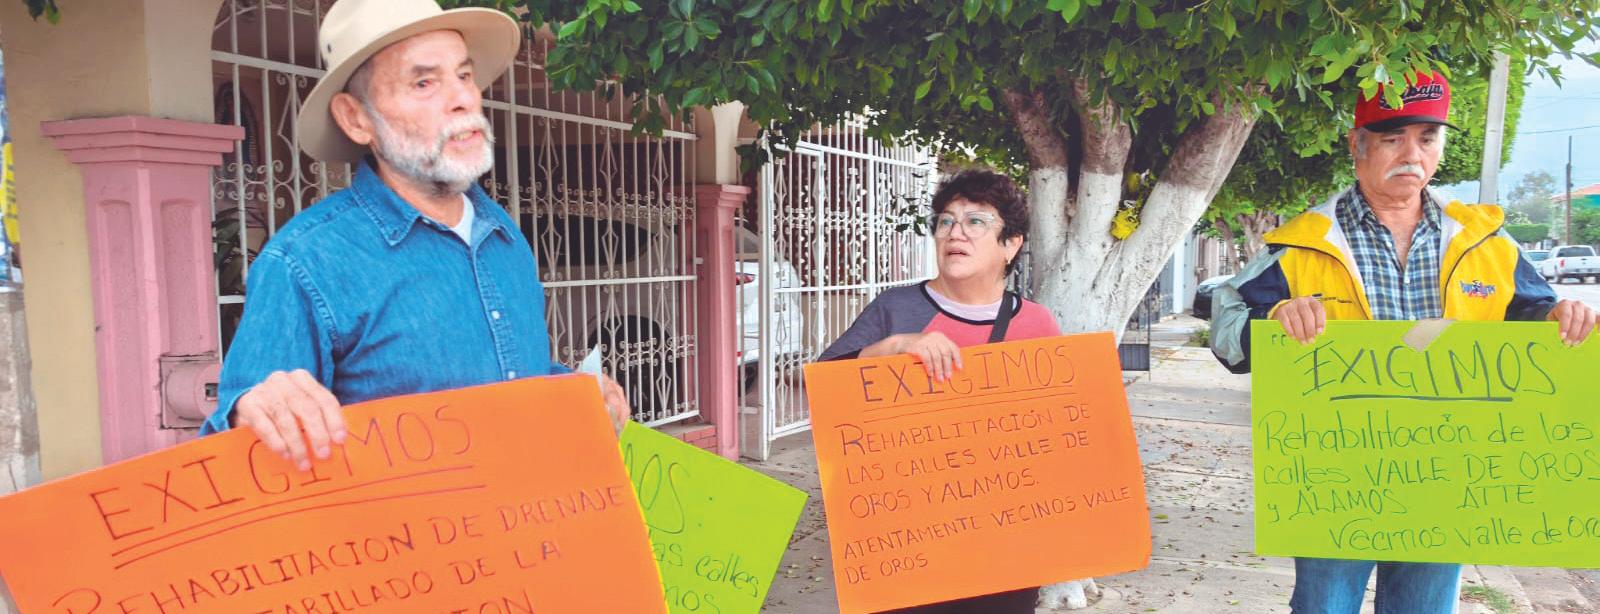 EXIGIMOS
REHABILITACION DE DRENAJE
DE LA
EXIGIMOS
REHABILITACIÓN DE
LAS CALLES VALLE DE
OROS Y ALAMOS.
ATENTAMENTE VECINOS VALLE
DE OROS
EXIGIMOS
Rehabilitación de las
calles VALLE DE OROS
y ÁLAMOS ATTE
Vecinos Valle de Oro
OS.
as calles
nos